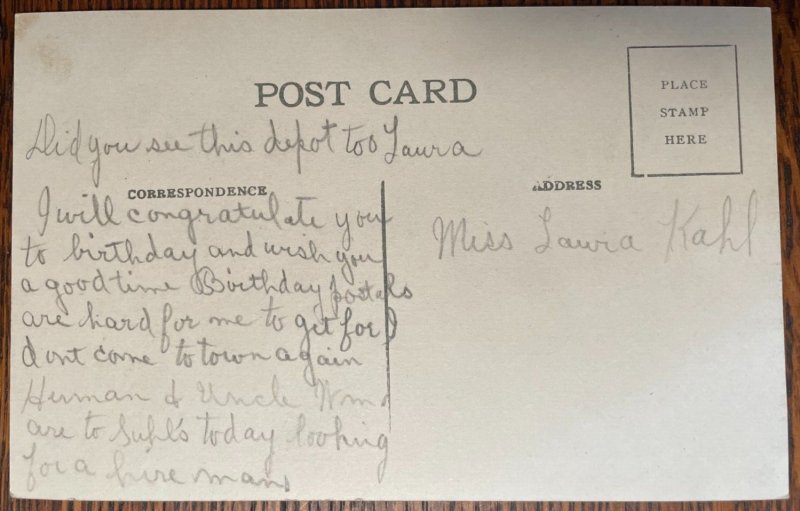 POST CARD
PLACE
STAMP
HERE
Did you see this depot too Laura
CORRESPONDENCE
I will congratulate you
to birthday and wish you
a good time Birthday postals
are hard for me to get for I
dont come to town again
Herman & Uncle Wm
are to Suhl's today looking
for a hire man
ADDRESS
Miss Laura Kahl